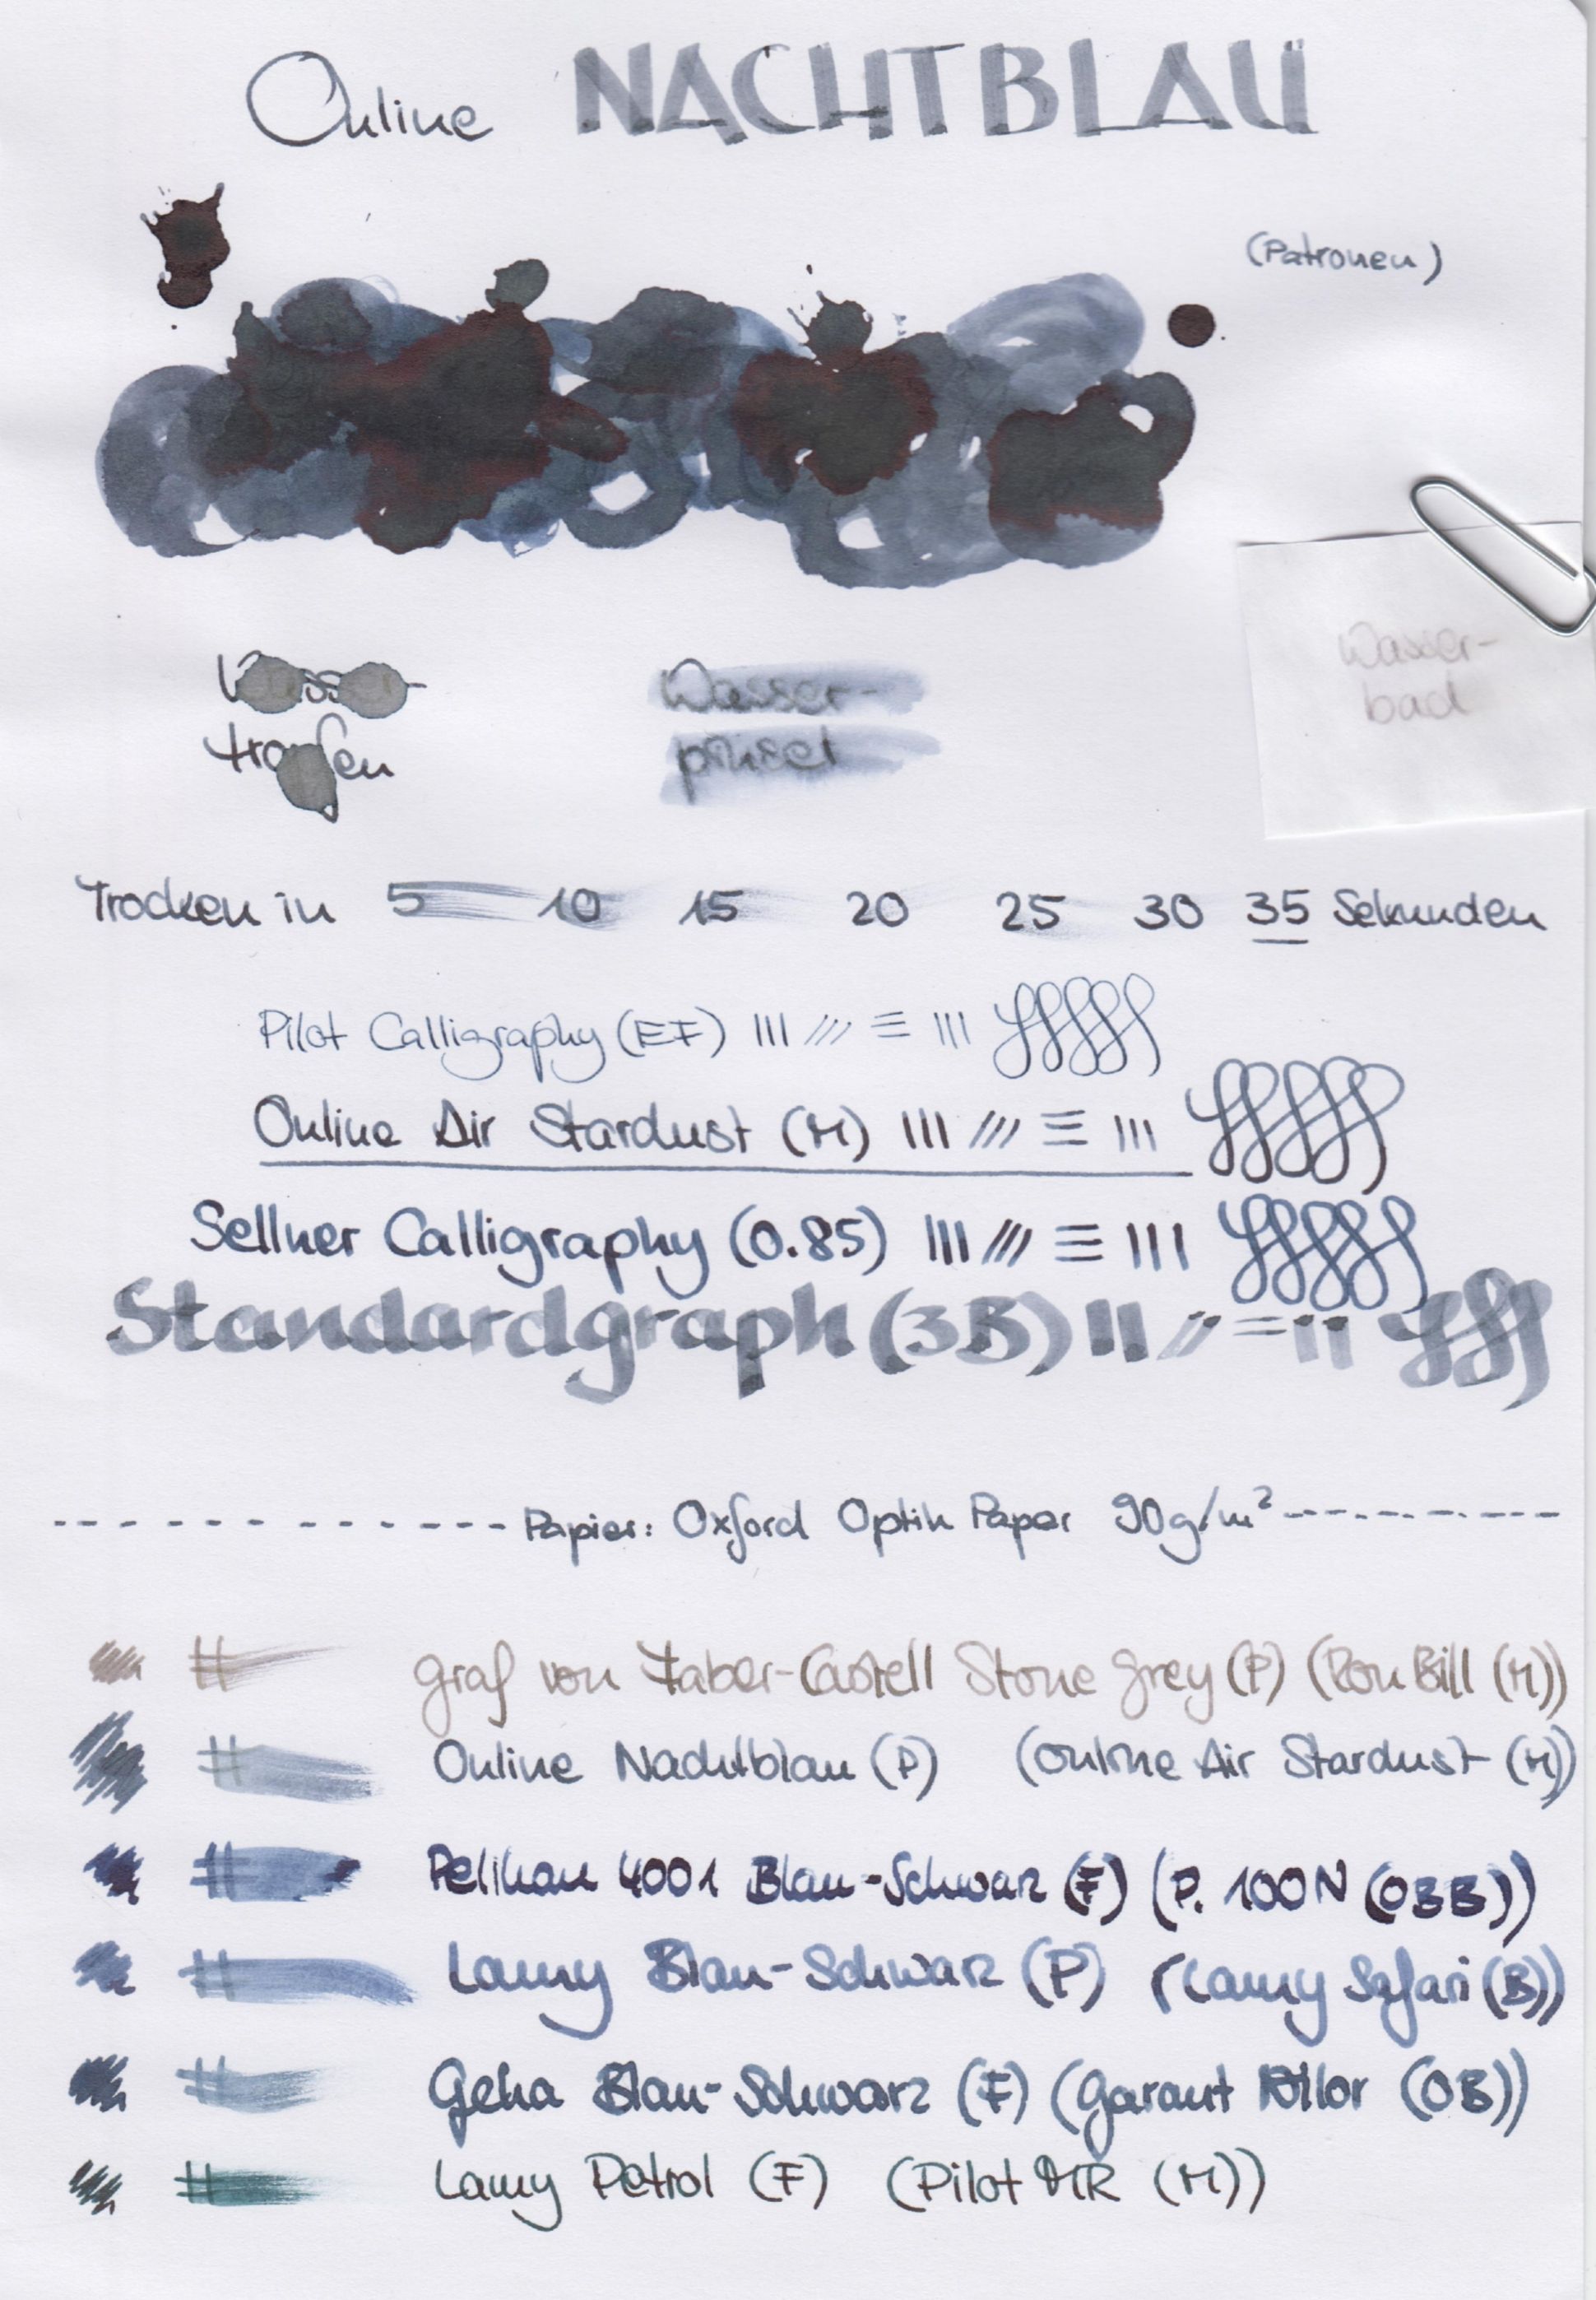 Online NACHTBLAU
(Patronen)
Wasser-
tropfen
Wasser-
pinsel
Wasser-
bad
Trocken in 5 10 15 20 25 30 35 Sekunden
Pilot Calligraphy (EF)
Online Air Stardust (M)
Sellner Calligraphy (0.85)
Standardgraph (3B)
Papier: Oxford Optik Paper 90g/m²
Graf von Faber-Castell Stone Grey (P) (Ron Bill (M))
Online Nachtblau (P) (Online Air Stardust (M))
Pelikan 4001 Blau-Schwarz (F) (P. 100N (OBB))
Lamy Blau-Schwarz (P) (Lamy Safari (B))
Geha Blau-Schwarz (F) (Garant (OB))
Lamy Petrol (F) (Pilot MR (M))